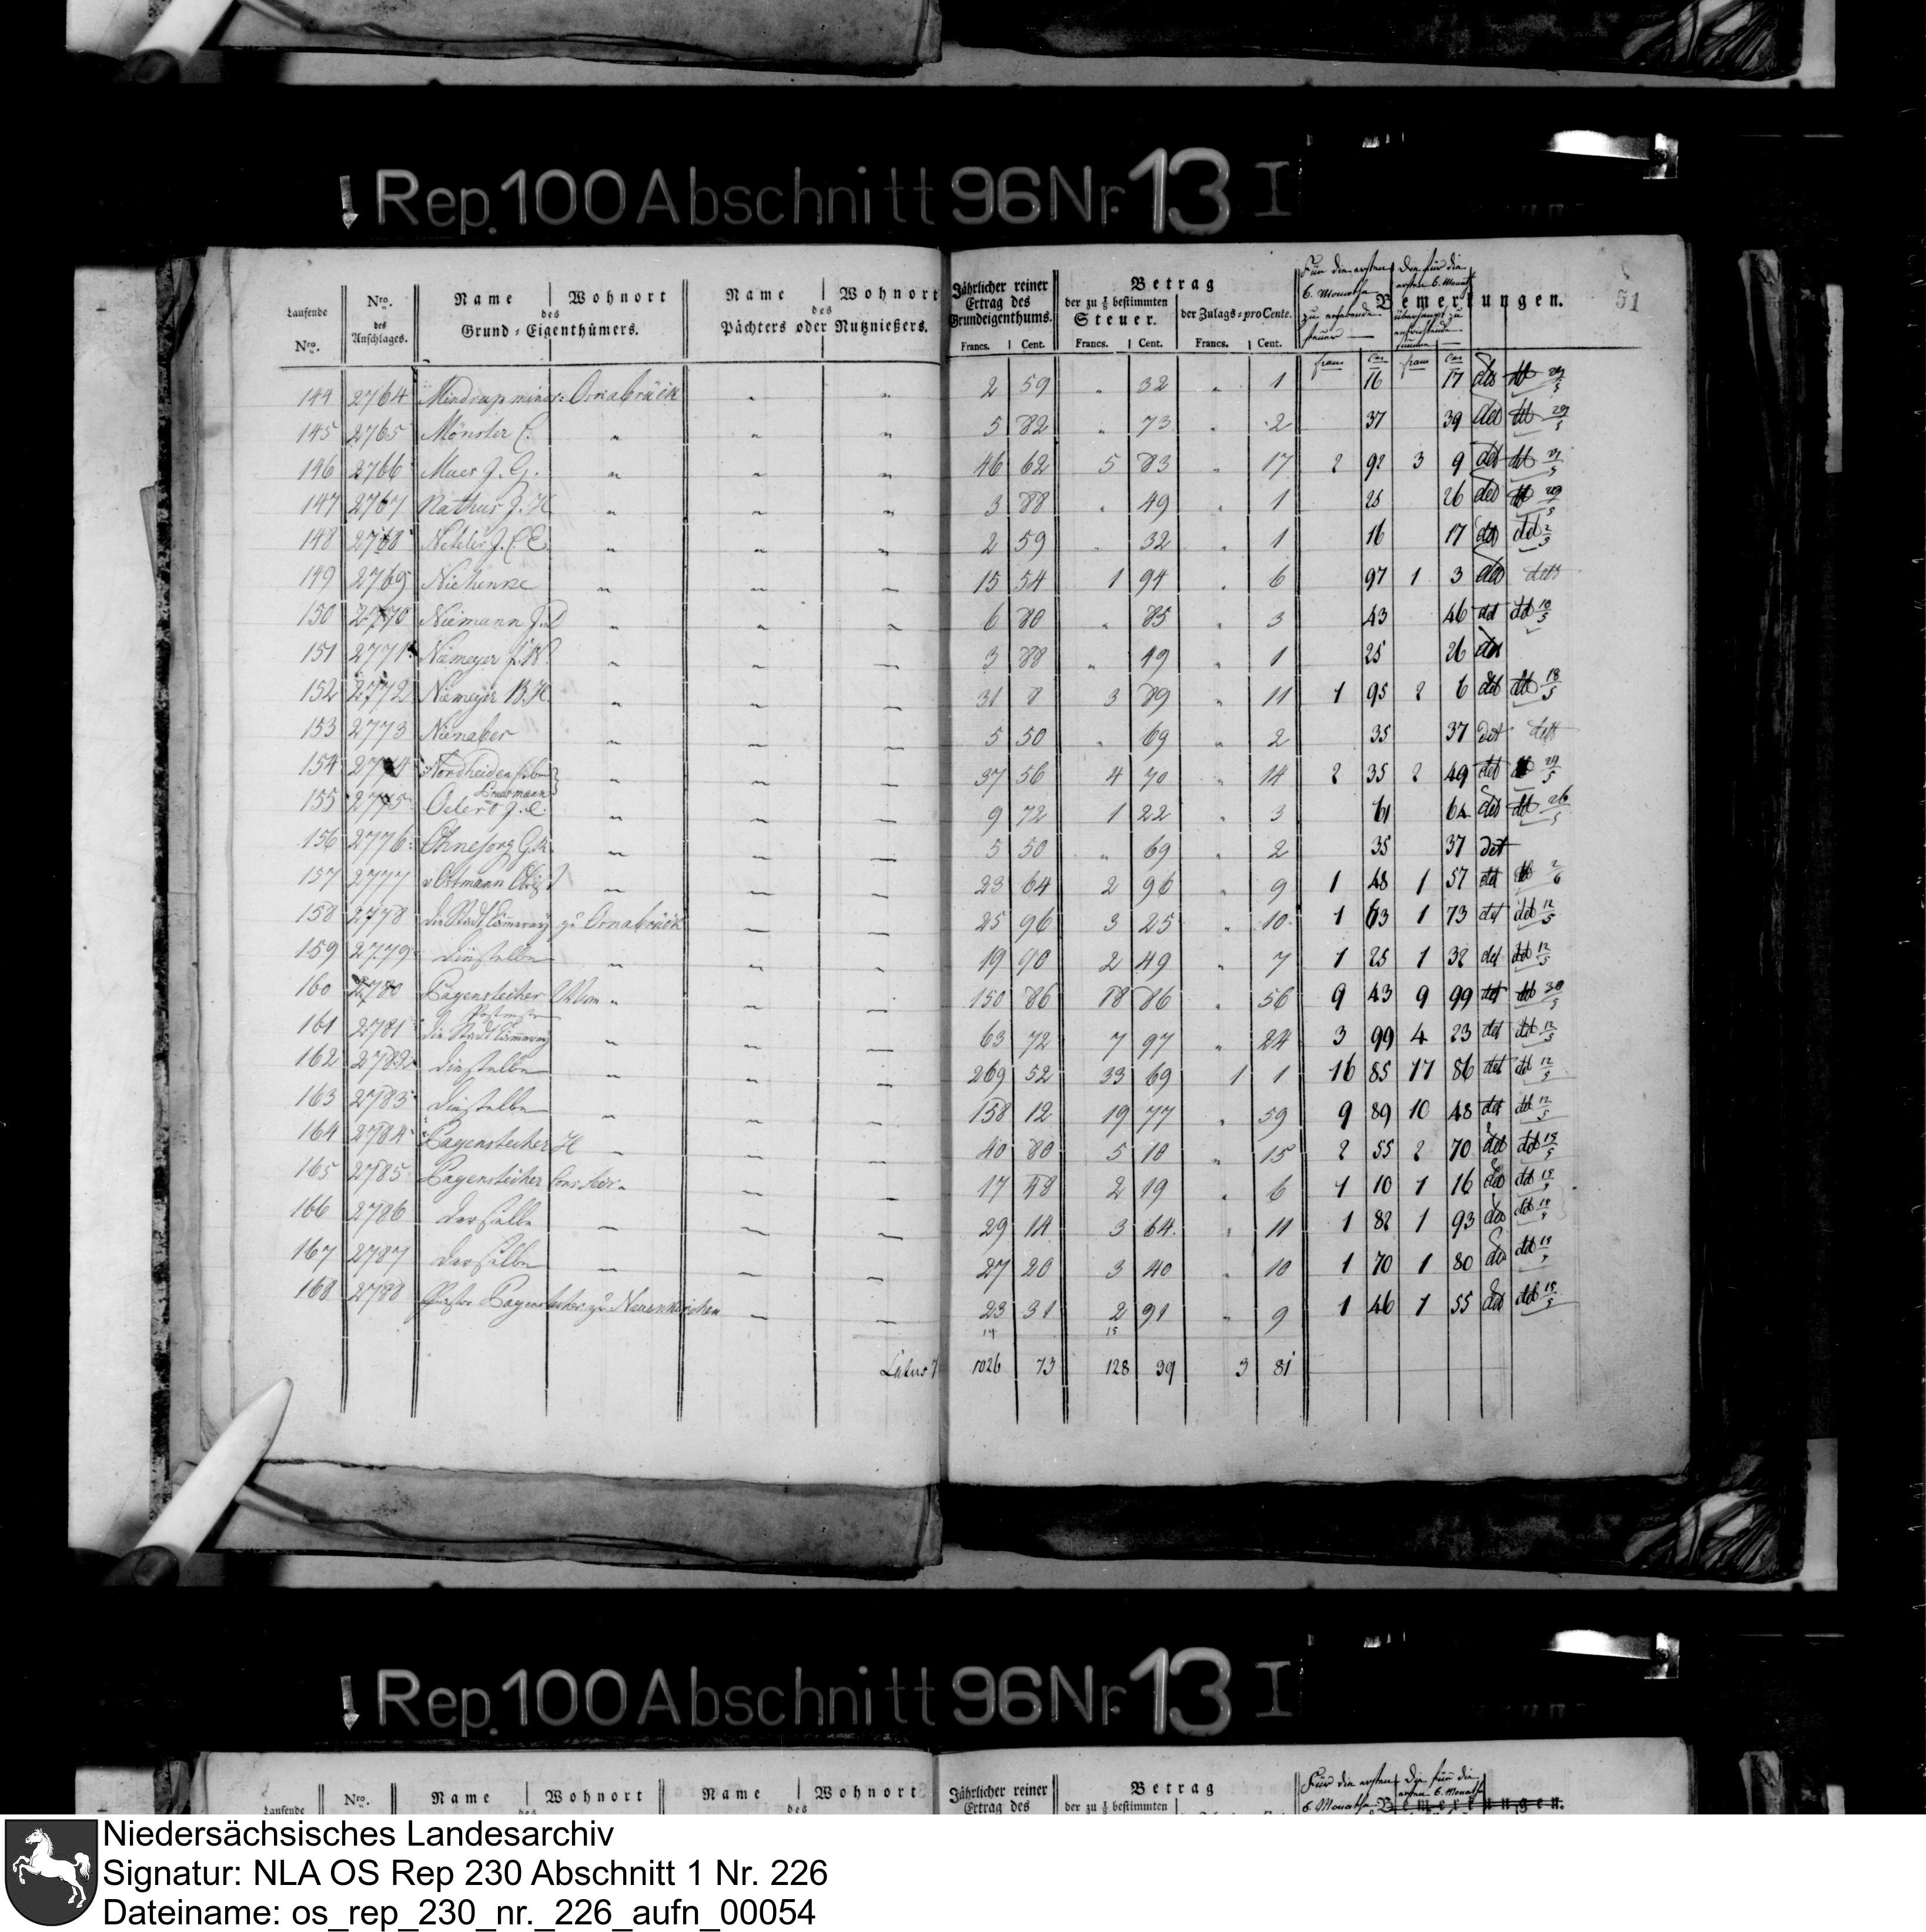 Rep. 100 Abschnitt 96 Nr. 13 I
51
Laufende Nro. | Nro. des Anschlages. | Name | Wohnort des Grund-Eigenthümers. | Name | Wohnort des Pächters oder Nutznießers. | Jährlicher reiner Ertrag des Grundeigenthums. Francs. Cent. | Betrag der zu ⅛ bestimmten Steuer. Francs. Cent. | der Zulags-pro Cente. Francs. Cent. | Bemerkungen.
Für die ersten 6. Monathe zu erhebende Steuer | Die für die ersten 6. Monath überhaupt zu entrichtende Summe
franc Cen franc Cen
144 2764 Mindrup minor: Osnabrück " " 2 59 " 32 " 1 16 17 det
145 2765 Mönster C. " " " 5 82 " 73 " 2 37 39 det
146 2766 Muer J. G. " " " 46 62 5 83 " 17 2 92 3 9 det
147 2767 Nathus J. H. " " " 3 88 " 49 " 1 25 26 det
148 2768 Neteler J. C. E. " " " 2 59 " 32 " 1 16 17 det
149 2769 Niehenke " " " 15 54 1 94 " 6 97 1 3 det
150 2770 Niemann J. D " " " 6 80 " 85 " 3 43 46 det
151 2771 Niemeyer J. W. " " " 3 88 " 49 " 1 25 26 det
152 2772 Niemeyer B. H. " " " 31 8 3 89 " 11 1 95 2 6 det
153 2773 Nienaber " " " 5 50 " 69 " 2 35 37 det
154 2774 Nordheiden " " " 37 56 4 70 " 14 2 35 2 49 det
155 2775 Oelert J. C. " " " 9 72 1 22 " 3 61 64 det
156 2776 Ohnesorg G. " " " 5 50 " 69 " 2 35 37 det
157 2777 v Ostmann " " " 23 64 2 96 " 9 1 48 1 57 det
158 2778 die Stadt Cämmerey zu Osnabrück " " 25 96 3 25 " 10 1 63 1 73 det
159 2779 dieselbe " " " 19 90 2 49 " 7 1 25 1 32 det
160 2780 Pagenstecher " " " 150 86 18 86 " 56 9 43 9 99 det
161 2781 die Stadt Cämmerey " " " 63 72 7 97 " 24 3 99 4 23 det
162 2782 dieselbe " " " 269 52 33 69 1 1 16 85 17 86 det
163 2783 dieselbe " " " 158 12 19 77 " 59 9 89 10 48 det
164 2784 Pagenstecher H " " " 40 80 5 10 " 15 2 55 2 70 det
165 2785 Pagenstecher " " " 17 48 2 19 " 6 1 10 1 16 det
166 2786 derselbe " " " 29 14 3 64 " 11 1 82 1 93 det
167 2787 derselbe " " " 27 20 3 40 " 10 1 70 1 80 det
168 2788 Pastor Pagenstecher zu Neuenkirchen " " 23 31 2 91 " 9 1 46 1 55 det
Latus 1026 73 128 39 3 81
Rep. 100 Abschnitt 96 Nr. 13 I
Laufende | Nro. | Name | Wohnort des | Name | Wohnort des | Jährlicher reiner Ertrag des | Betrag der zu ⅛ bestimmten
Für die ersten 6. Monathe | Die für die ersten 6. Monathe
Bemerkungen.
Niedersächsisches Landesarchiv
Signatur: NLA OS Rep 230 Abschnitt 1 Nr. 226
Dateiname: os_rep_230_nr._226_aufn_00054